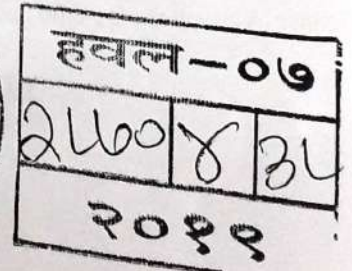 हवल-०७
२५७० ४ ३५
२०१९